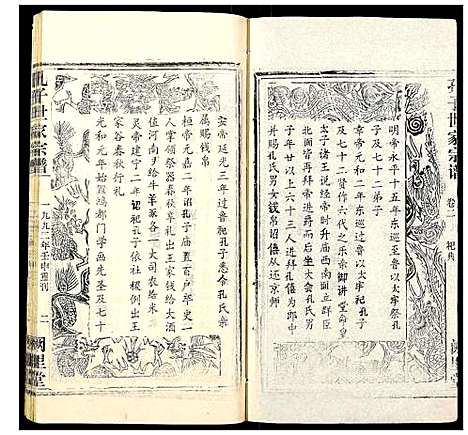 孔子世家宗谱
卷二
祀典
阙里堂
明帝永平十五年东巡至鲁以太牢祭孔
子及七十二弟子
章帝元和二年东巡过鲁以太牢祠孔子
及七十二贤作六代之乐帝御讲堂命皇
太子诸王说经
帝时升庙西面南面立群臣中庭
北面皆再拜帝进爵而后坐大会孔氏男
子年二十以上六十三人进拜孔僖为郎中
并赐孔氏男女钱帛诏僖从还京师
安帝延光三年过鲁祀孔子悉会孔氏宗
属赐钱帛
桓帝元嘉二年诏孔子庙置百户卒史一
人掌领祭器春秋飨祀出王家钱给大酒
值河南尹给牛羊豕各一大司农给米
灵帝建宁二年诏祀孔子依社稷例出王
家谷春秋行礼
光和元年始置鸿都门学画先圣及七十
孔子世家宗谱
一九九二年壬申重刊
二
阙里堂